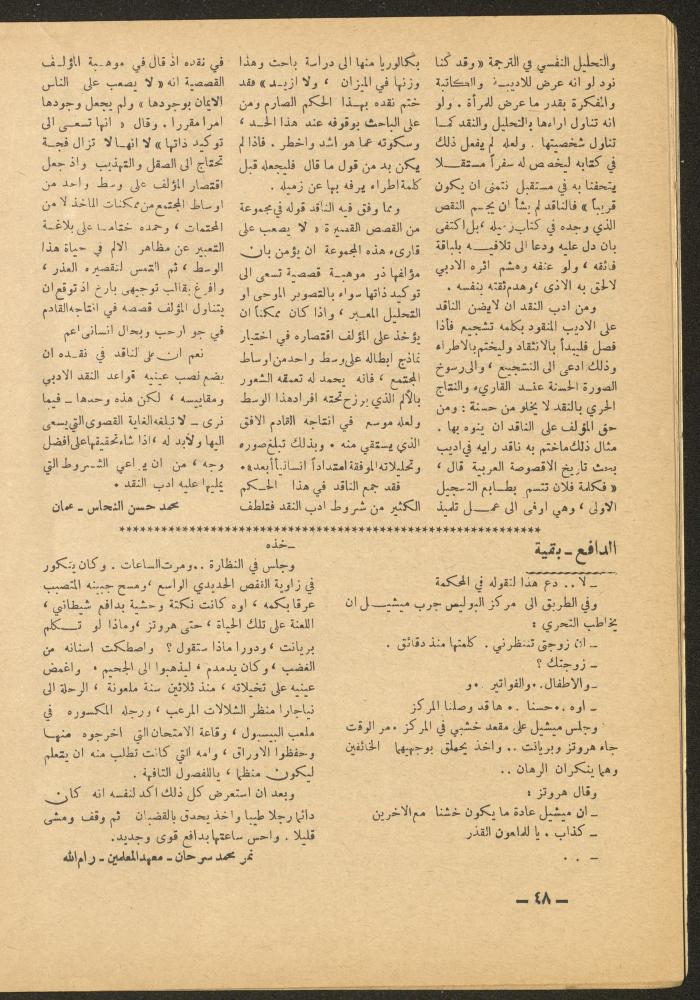 والتحليل النفسي في الترجمة «وقد كنا
نود لو انه عرض للاديبة والكاتبة
والمفكرة بقدر ما عرض للمرأة . ولو
انه تناول اراءها بالتحليل والنقد كما
تناول شخصيتها . ولعله لم يفعل ذلك
في كتابه ليخصص له سفراً مستقلا
يتحفنا به في مستقبل نتمنى ان يكون
قريباً » فالناقد لم يشأ ان يجسم النقص
الذي وجده في كتاب زميله ، بل اكتفى
بان دل عليه ودعا الى تلافيه بلباقة
فائقه ، ولو عنفه وهشم اثره الادبي
لالحق به الاذى ، وهدم ثقته بنفسه .
ومن ادب النقد ان لايضن الناقد
على الاديب المنقود بكلمه تشجيع فأذا
فصل فليبدأ بالانتقاد وليختم بالاطراء
وذلك ادعى الى التشجيع ، والى رسوخ
الصورة الحسنة عند القاريء والنتاج
الحري بالنقد لا يخلو من حسنة : ومن
حق المؤلف على الناقد ان ينوه بها .
مثال ذلك ماختم به ناقد رايه في اديب
بحث تاريخ الاقصوصة العربية قال ،
« فكلمة فلان تتسم بطابع التسجيل
الاولى ، وهي اوفى الى عمل تلميذ
بكالوريا منها الى دراسة باحث وهذا
وزنها في الميزان ، ولا ازيد » فقد
ختم نقده بهذا الحكم الصارم ومن
على الباحث بوقوفه عند هذا الحد ،
وسكوته عما هو اشد واخطر . فاذا لم
يكن بد من قول ما قال فليجعله قبل
كلمة اطراء يرفه بها عن زميله .
ومما وفق فيه الناقد قوله في مجموعة
من القصص القصيرة « لا يصعب على
قارىء هذه المجموعة ان يؤمن بان
مؤلفها ذو موهبة قصصية تسعى الى
توكيد ذاتها سواء بالتصوير الموحى او
التحليل المعبر ، واذا كان ممكناً ان
يؤخذ على المؤلف اقتصاره في اختيار
نماذج ابطاله على وسط واحد من اوساط
المجتمع ، فانه يحمد له تعمقه الشعور
بالألم الذي يرزح تحته افراد هذا الوسط
ولعله موسع في انتاجه القادم الافق
الذي يستقي منه . وبذلك تبلغ صوره
وتحليلاته الموفقة امتداداً انسانياً أبعد».
فقد جمع الناقد في هذا الحكم
الكثير من شروط ادب النقد فتلطف
في نقده اذ قال في موهبة المؤلف
القصصية انه « لا يصعب على الناس
الايمان بوجودها » ولم يجعل وجودها
امرا مقررا . وقال « انها تسعى الى
توكيد ذاتها » لا انها لا تزال فجة
تحتاج الى الصقل والتهذيب واذ جعل
اقتصار المؤلف على وسط واحد من
اوساط المجتمع من ممكنات الماخذ لا من
المحتمات ، وحمده ختاما على بلاغة
التعبير عن مظاهر الالم في حياة هذا
الوسط ، ثم التمس لتقصيره العذر ،
وافرغ بقالب توجيهي بارع اذ توقع ان
يتناول المؤلف قصصه في انتاجه القادم
في جو ارحب وبحال انساني اعم
نعم ان على الناقد في نقده ان
يضع نصب عينيه قواعد النقد الادبي
ومقاييسه ، لكن هذه وحدها ـ فيما
نرى ـ لا تبلغه الغاية القصوى التي يسعى
اليها ولابد له ، اذا شاء تحقيقها على افضل
وجه ، من ان يراعي الشروط التي
يمليها عليه ادب النقد .
محمد حسن النحاس ـ عمان
الدافع ـ بقية
ـ لا .. دع هذا لتقوله في المحكمة
وفي الطريق الى مركز البوليس جرب ميشيل ان
يخاطب التحري :
ـ ان زوجتي تنتظرني . كلمتها منذ دقائق .
ـ زوجتك ؟
ـ والاطفال .. والفواتير .. و
ـ اوه .. حسنا .. ها قد وصلنا المركز
وجلس ميشيل على مقعد خشبي في المركز .. مر الوقت
جاء هروتز وبريانت .. واخذ يحملق بوجهيهما الخائفين
وهما ينكران الرهان ..
وقال هروتز :
ـ ان ميشيل عادة ما يكون خشنا مع الاخرين
ـ كذاب . يا للملعون القذر
ـ . . .
ـ خذه
وجلس في النظارة .. ومرت الساعات . وكان يتكور
في زاوية القفص الحديدي الواسع ، ومسح جبينه المتصبب
عرقا بكمه ، اوه كانت نكتة وحشية بدافع شيطاني ،
اللعنة على تلك الحياة ، حتى هروتز ، وماذا لو تكلم
بريانت ، ودورا ماذا ستقول ؟ واصطكت اسنانه من
الغضب ، وكان يدمدم ، ليذهبوا الى الجحيم . واغمض
عينيه على تخيلاته ، منذ ثلاثين سنة ملعونة ، الرحلة الى
نياجارا منظر الشلالات المرعب ، ورجله المكسوره في
ملعب البيسبول ، وقاعة الامتحان التي اخرجوه منها
وحفظوا الاوراق ، وامه التي كانت تطلب منه ان يتعلم
ليكون منظما ، ياللفصول التافهة .
وبعد ان استعرض كل ذلك اكد لنفسه انه كان
دائما رجلا طيبا واخذ يحدق بالقضبان ثم وقف ومشى
قليلا . واحس ساعتها بدافع قوى وجديد.
نمر محمد سرحان ـ معهد المعلمين ـ رام الله
ـ ٤٨ ـ